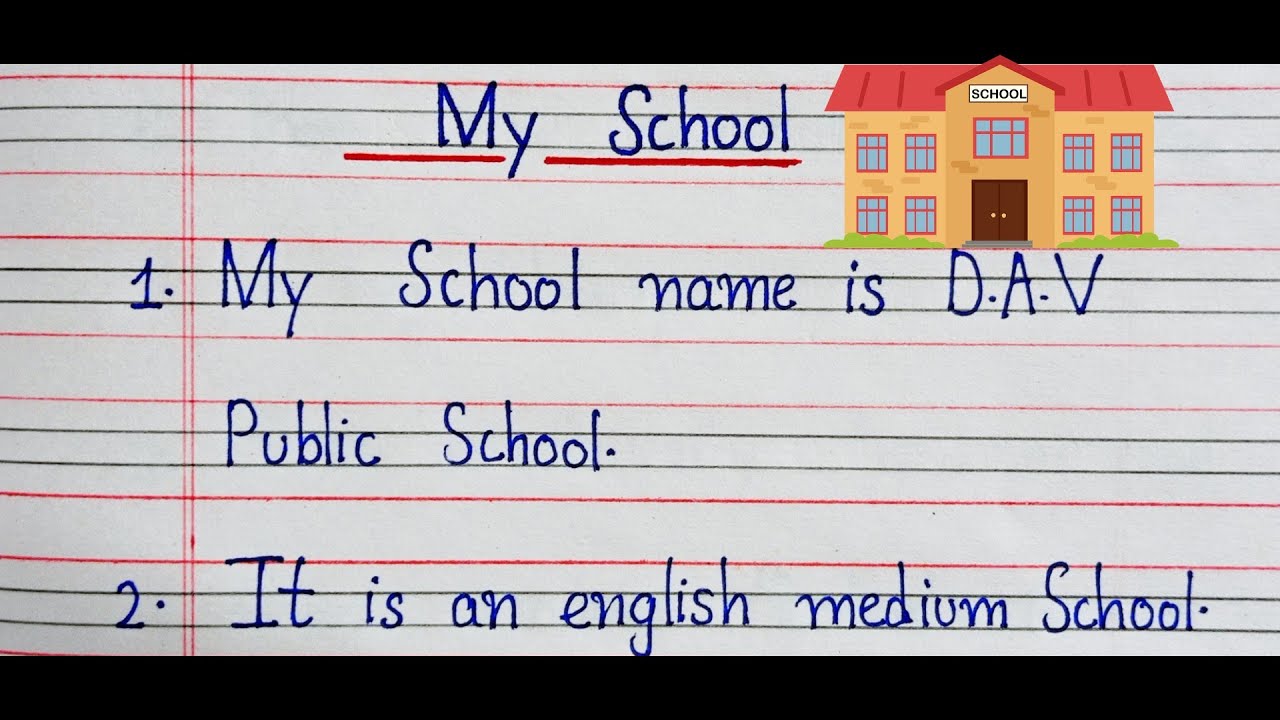 My School
SCHOOL
1. My School name is D.A.V
Public School.
2. It is an english medium School.